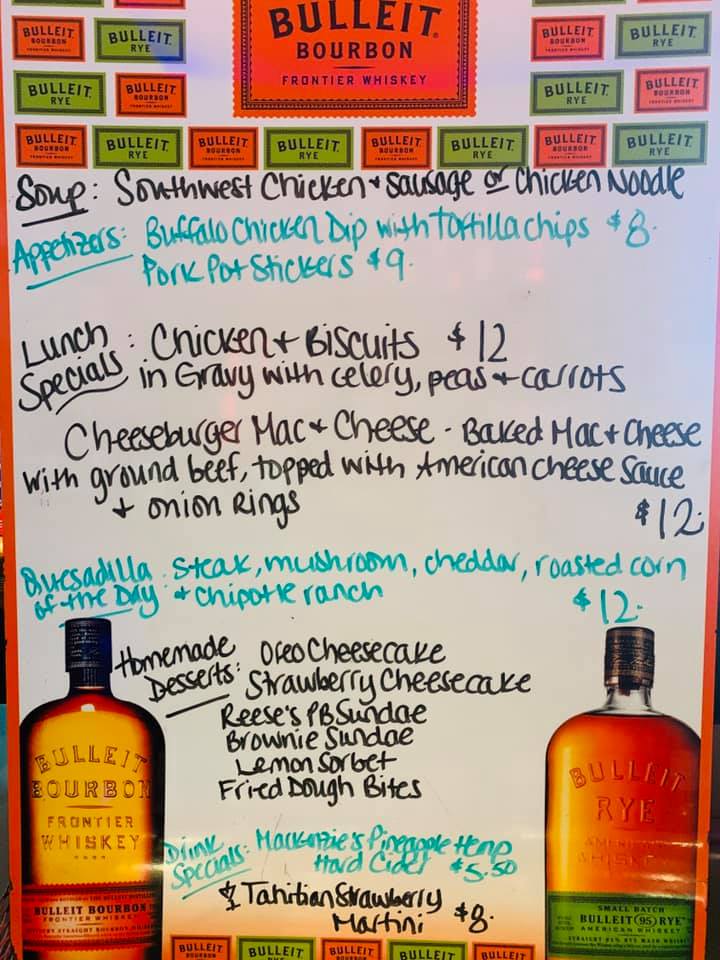 BULLEIT
BOURBON
FRONTIER WHISKEY
BULLEIT BOURBON
BULLEIT RYE
BULLEIT RYE
BULLEIT BOURBON
BULLEIT BOURBON
BULLEIT RYE
BULLEIT RYE
BULLEIT BOURBON
BULLEIT BOURBON
BULLEIT RYE
BULLEIT BOURBON
BULLEIT RYE
BULLEIT BOURBON
BULLEIT RYE
BULLEIT BOURBON
BULLEIT RYE
Soup: Southwest Chicken + Sausage or Chicken Noodle
Appetizers: Buffalo Chicken Dip with Tortilla chips $8.
Pork Pot Stickers $9.
Lunch Specials: Chicken + Biscuits $12
in Gravy with celery, peas + carrots
Cheeseburger Mac + Cheese - Baked Mac + Cheese
with ground beef, topped with American cheese sauce
+ onion Rings
$12.
Quesadilla of the Day: Steak, mushroom, cheddar, roasted corn
+ chipotle ranch $12.
Homemade Desserts: Oreo Cheesecake
Strawberry Cheesecake
Reese's PB Sundae
Brownie Sundae
Lemon Sorbet
Fried Dough Bites
Drink Specials: Mackenzie's Pineapple Hemp
Hard Cider $5.50
Tahitian Strawberry
Martini $8.
BULLEIT
BOURBON
FRONTIER
WHISKEY
BULLEIT BOURBON
FRONTIER WHISKEY
BULLEIT
RYE
AMERICAN
WHISKEY
SMALL BATCH
BULLEIT (95) RYE
AMERICAN WHISKEY
BULLEIT
BULLEIT
BULLEIT
BULLEIT
BULLEIT